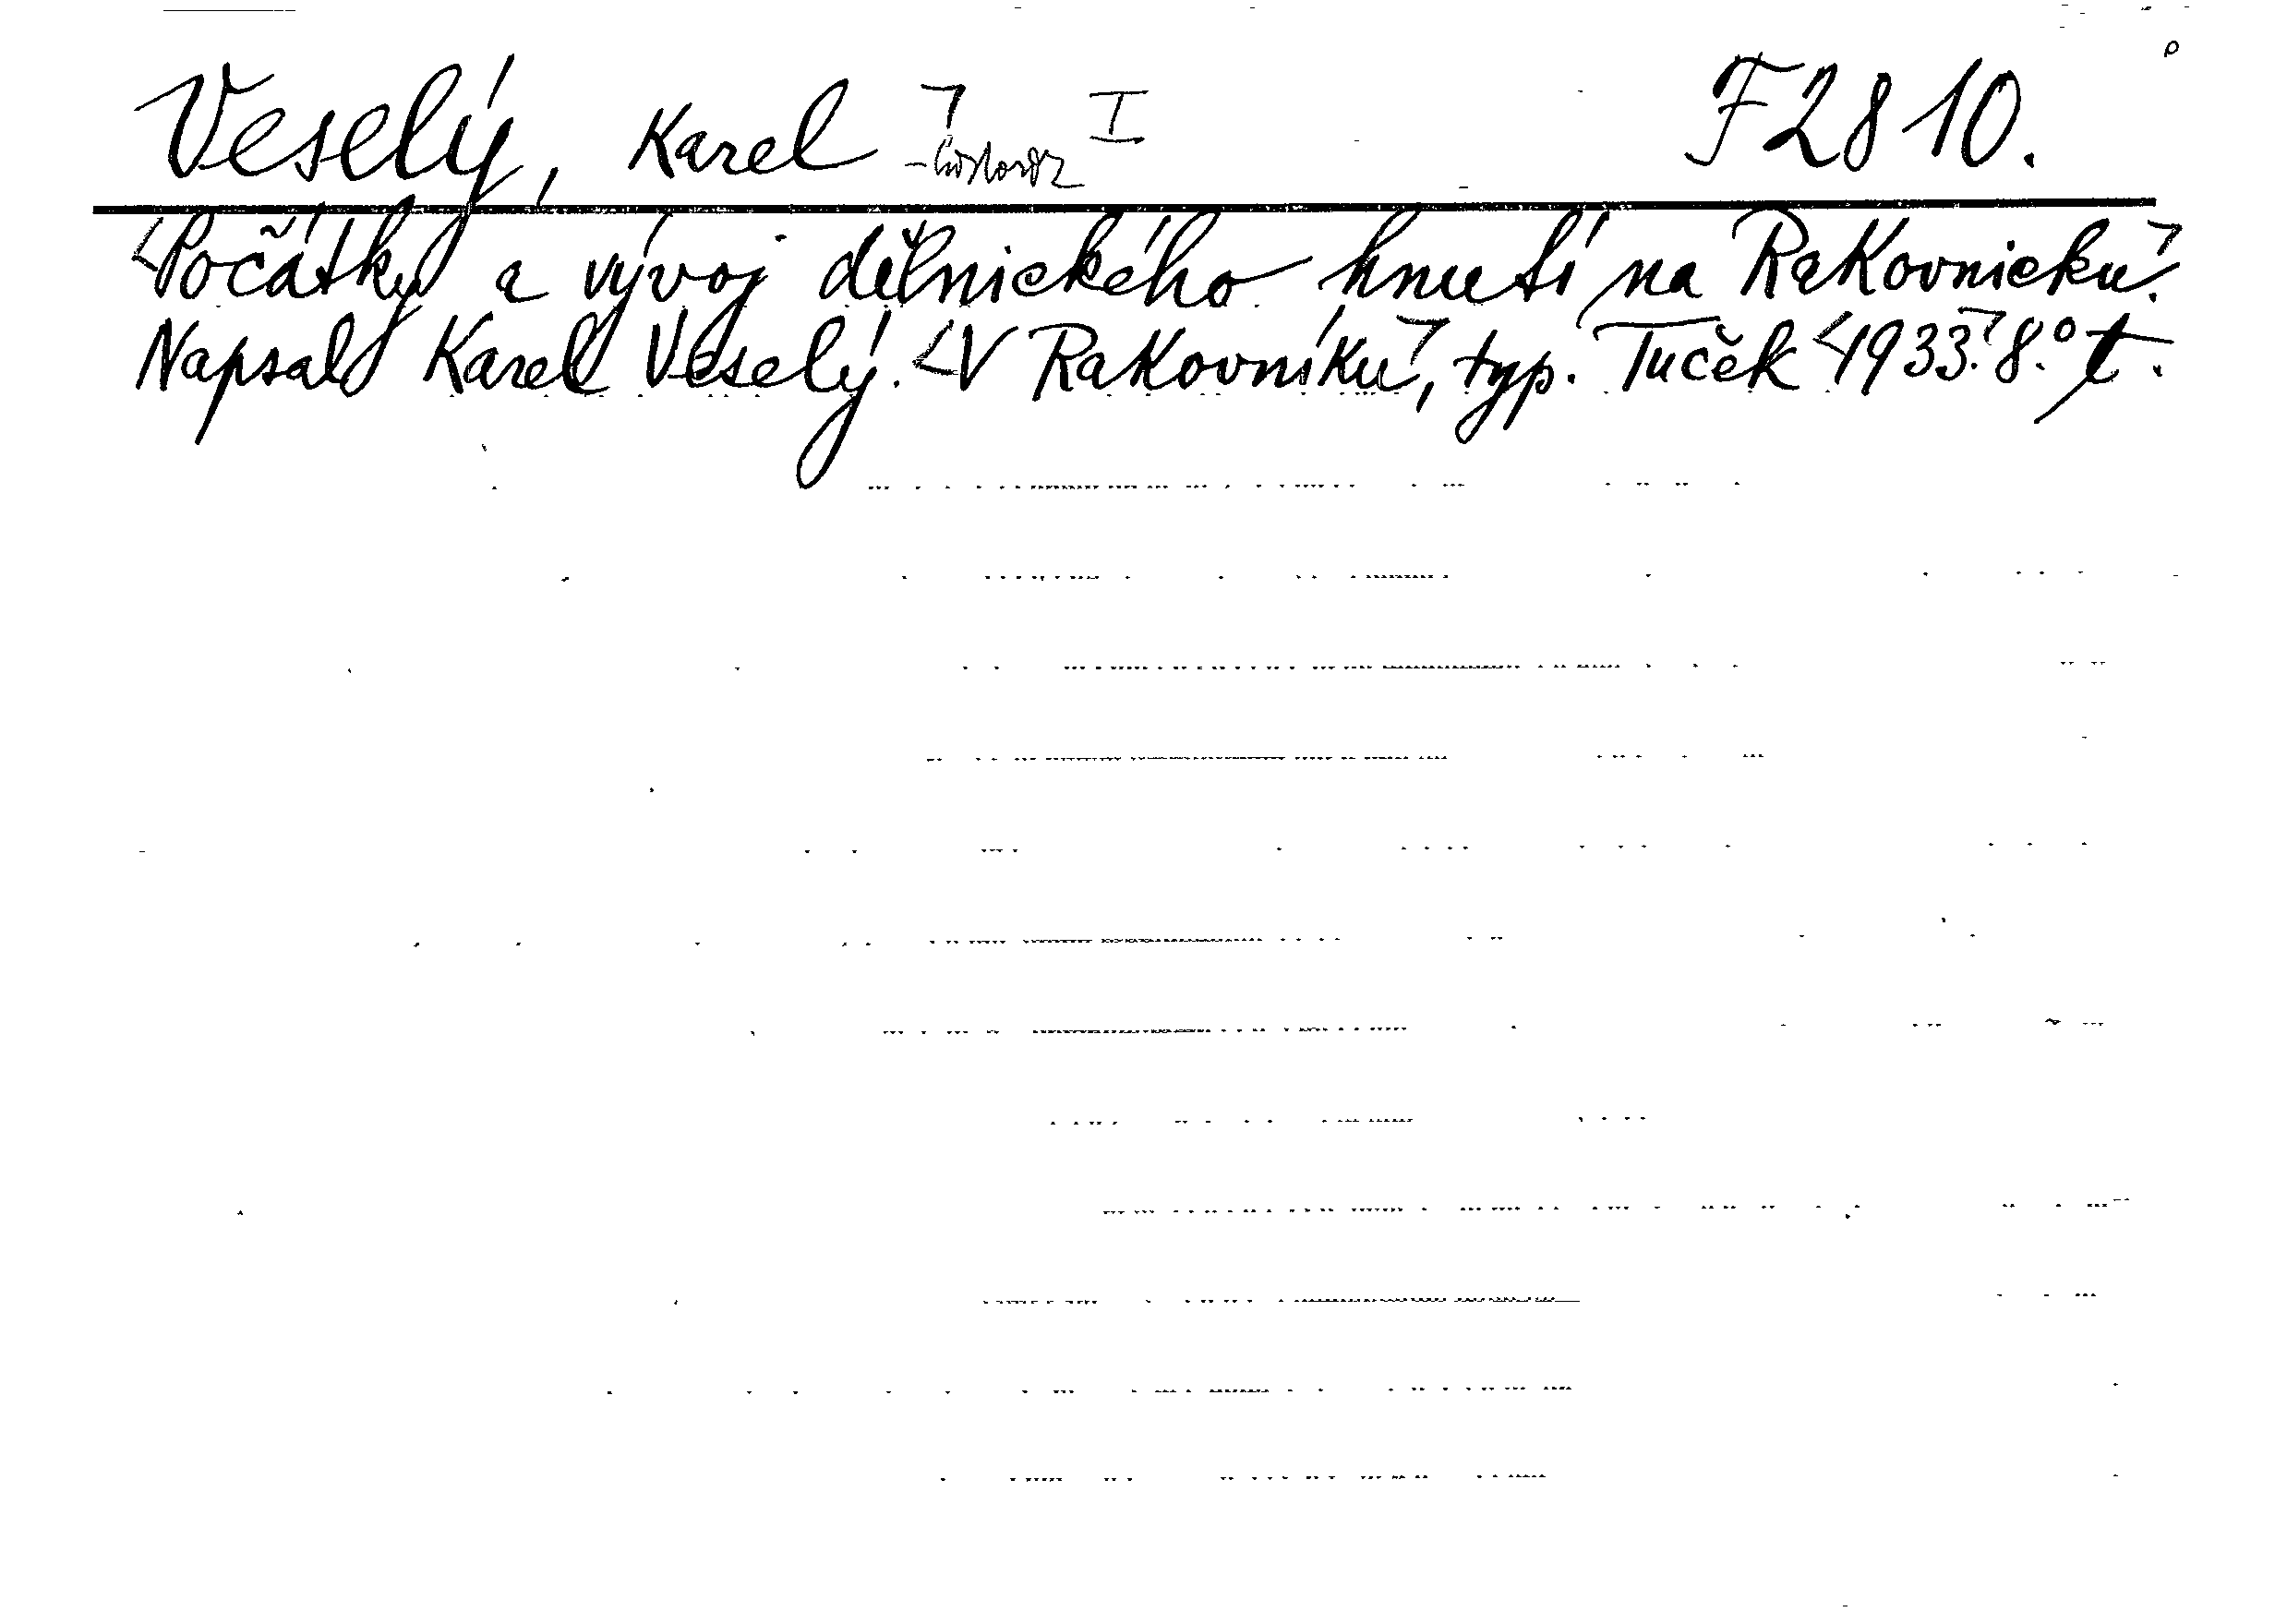 Veselý, Karel I F 2810.
Počátky a vývoj dělnického hnutí na Rakovnicku.
Napsal Karel Veselý. V Rakovníku, typ. Tuček 1933. 8.° t.